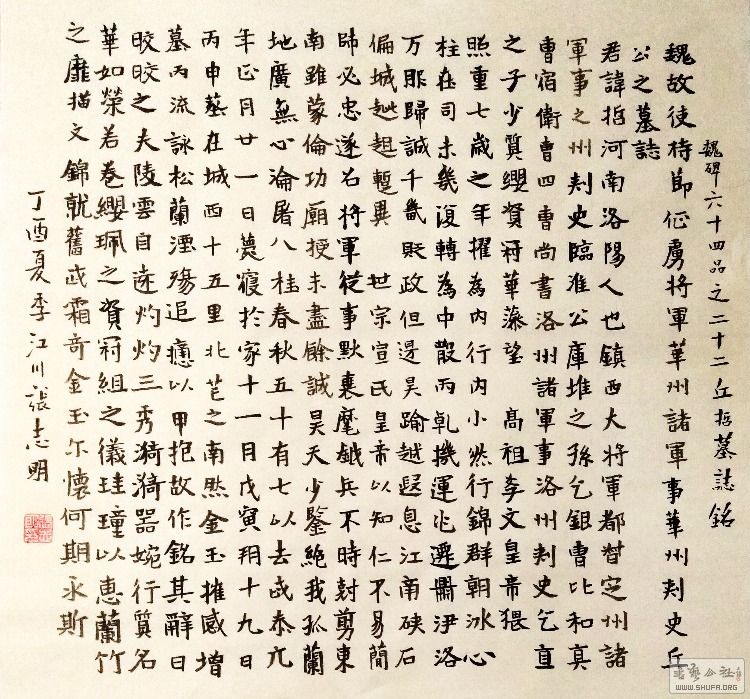 魏碑六十四品之二十二丘哲墓誌銘
魏故使持節征虜將軍華州諸軍事華州刺史丘
公之墓誌
君諱哲河南洛陽人也鎮西大將軍都督定州諸
軍事之州刺史臨淮公庫堆之孫乞銀曹比和真
曹宿衛曹四曹尚書洛州諸軍事洛州刺史乞直
之子少質纓資冠華藻望 高祖孝文皇帝猥
照重七歲之年擢為內行內小然行錦群朝冰心
柱在司未幾復轉為中散丙乹機運兆遷罽伊洛
万服歸誠千畿貶政但邊昊踰越歇息江南硤石
偏城趑趄蹔異 世宗宣武皇帝以知仁不易簡
帥必忠遂召將軍從事默裹麾鉞兵不時討剪東
南雖蒙倫功廟授未盡餘誠昊天少鑒絕我孤蘭
地廣無心淪屠八桂春秋五十有七以去武泰元
年正月廿一日薨寢於家十一月戊寅朔十九日
丙申葬在城西十五里北芒之南然金玉摧感增
墓丙流詠松蘭湮殤追癒以甲抱故作銘其辭曰
晈晈之夫陵雲自遊灼灼三秀漪漪器婉行質名
華如榮若卷纓珮之資冠組之儀珪璋以惠蘭竹
之靡描文錦就舊武霜奇金玉尓懷何期永斯
丁酉夏季江川張志明
書藝公社
WWW.SHUFA.ORG